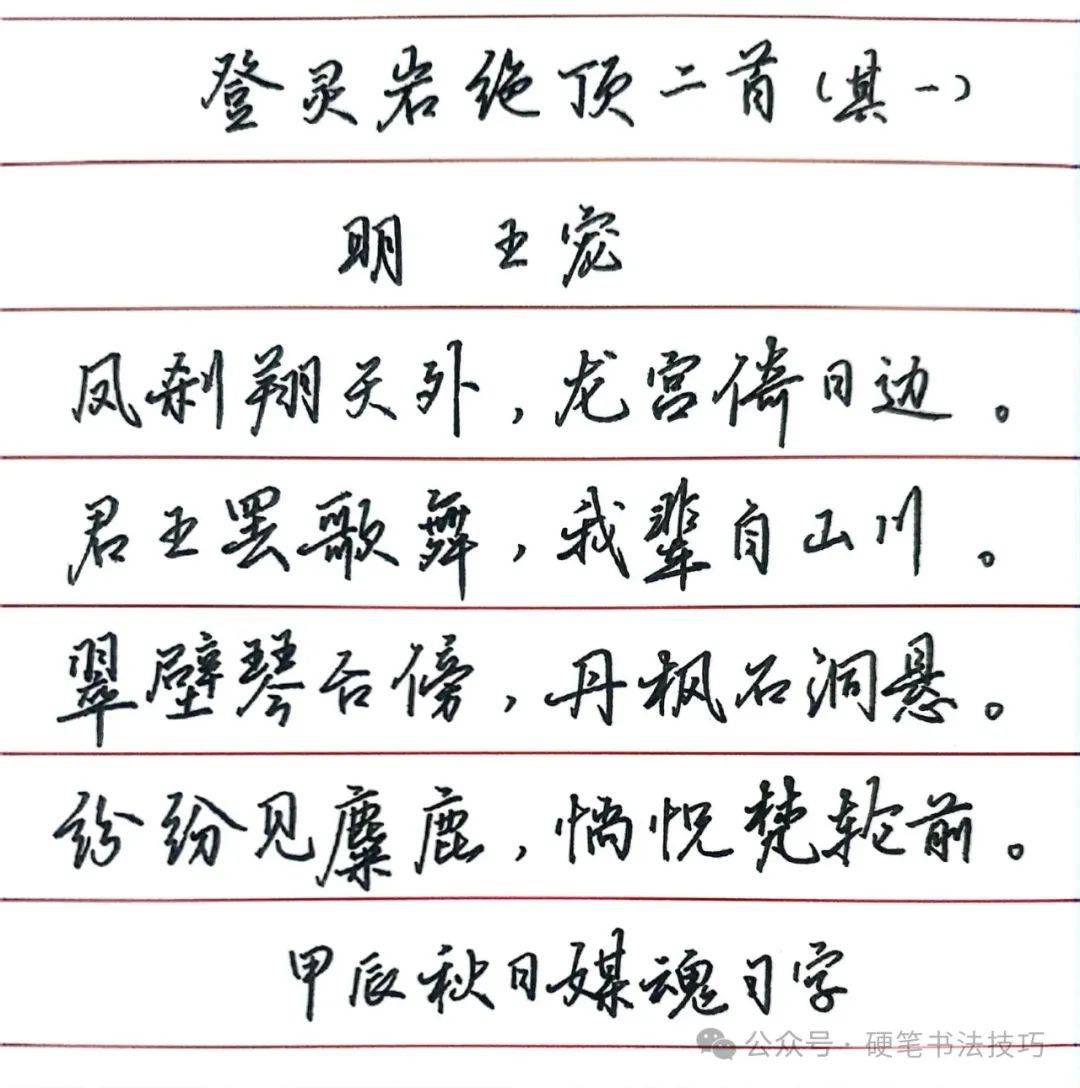 登灵岩绝顶二首(其一)
明 王宠
凤刹翔天外,龙宫倚日边。
君王罢歌舞,我辈自山川。
翠壁琴台傍,丹枫石洞悬。
纷纷见麋鹿,惝怳梵轮前。
甲辰秋日媒魂习字
公众号·硬笔书法技巧